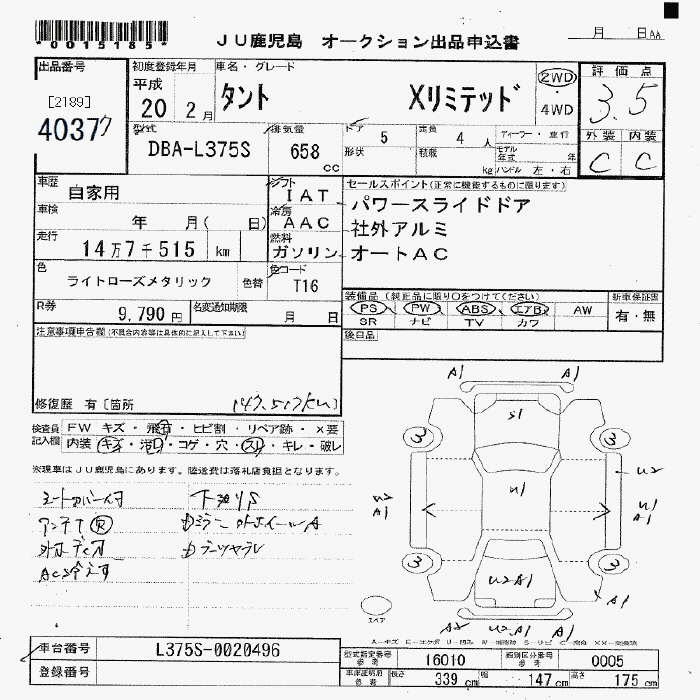 *0015185*
JU鹿児島 オークション出品申込書
月 日AA
出品番号 初度登録年月 車名・グレード 評価点
[2189]
40377
平成
20 2月
タント Xリミテッド
2WD
4WD
3.5
外装 内装
C C
型式 排気量 ドア 定員
DBA-L375S 658 cc
5 4 人
形状 積載 kg
ディーラー・並行
モデル年式 年
ハンドル 左・右
車歴 自家用
シフト IAT
車検 年 月( 日)
冷房 AAC
走行 14万7千515 km
燃料 ガソリン
色 ライトローズメタリック 色替
色コード T16
セールスポイント(正常に機能するものに限ります)
パワースライドドア
社外アルミ
オートAC
R券 9,790円 名変通知期限 月 日
装備品(純正品に限り○をつけてください) 新車保証書
PS PW ABS エアB AW
SR ナビ TV カワ
有・無
注意事項申告欄(不具合内容等は具体的に記入して下さい)
後日品
修復歴 有[箇所
(147,517km)
検査員記入欄
FW キズ・飛石・ヒビ割・リペア跡・×要
内装 キズ・汚れ・コゲ・穴・スレ・キレ・破レ
※現車はJU鹿児島にあります。陸送費は落札店負担となります。
シートカバー付 下廻りS
アンテナ欠
AC冷えず
A1 A1
S1
3 3
U2
U2
A1
U1
U2
A1
3 3
U2A1
A1
A2 U2 A1
スペア
車台番号 L375S-0020496
登録番号
型式指定番号 参考 16010 類別区分番号 参考 0005
車庫証明用 参考 長さ 339 cm 幅 147 cm 高さ 175 cm